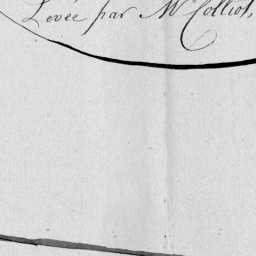 Levée par Mr Colliot,